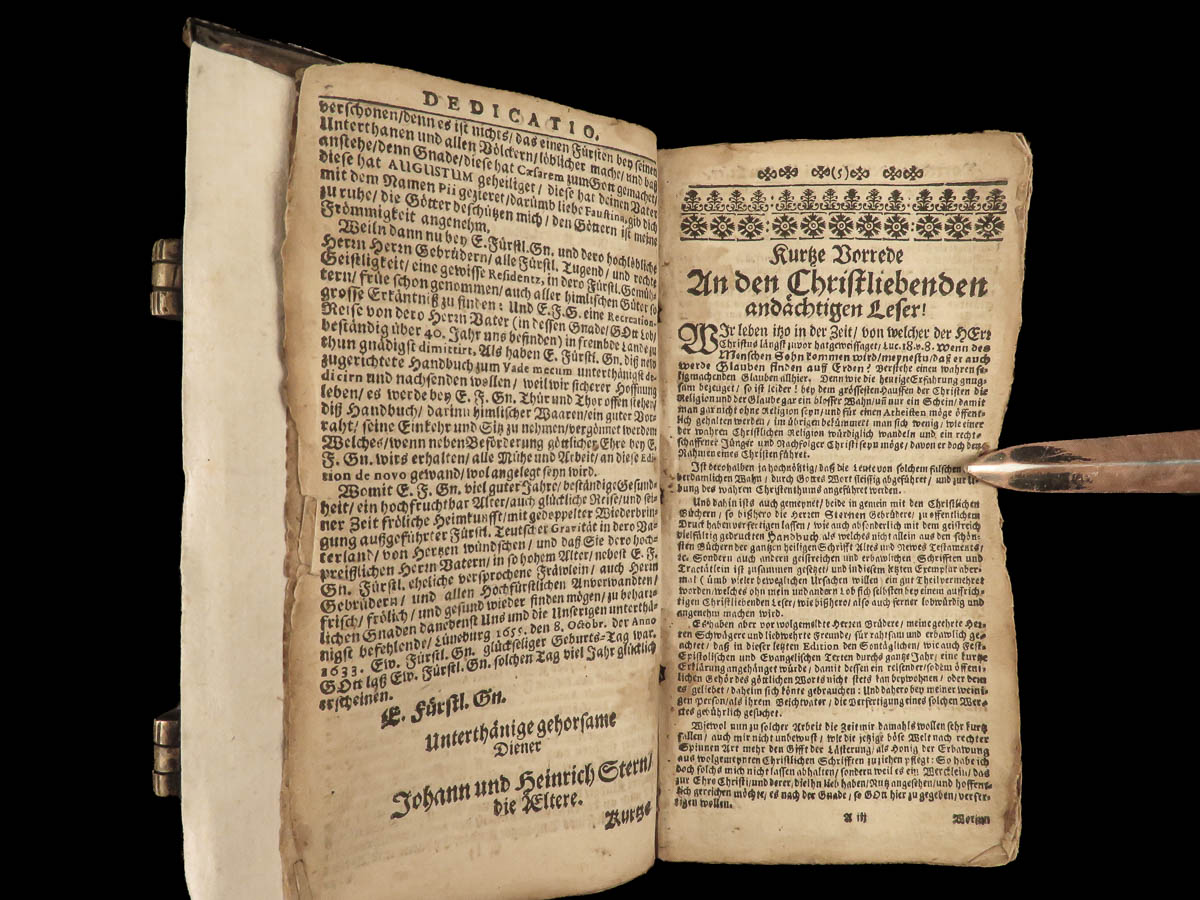 DEDICATIO.
verschonen/denn es ist nichts/ das einen Fürsten bey seinen
Unterthanen und allen Völckern/löblicher mache/ und baß
anstehe/denn Gnade/diese hat Cæsarem zum Gott gemachet/
diese hat AUGUSTUM geheiliget/ diese hat deinen Vater
mit dem Namen Pii gezieret/darümb liebe Faustina, gib dich
zu ruhe/ die Götter beschützen mich/ den Göttern ist meine
Frömmigkeit angenehm.
Weiln dann nu bey E. Fürstl. Gn. und dero hochlöbliche
Herrn Herrn Gebrüdern/ alle Fürstl. Tugend/ und rechte
Geistligkeit/ eine gewisse Residentz, in dero Fürstl. Gemüh-
tern/ früe schon genommen/ auch aller himlischen Güter so
grosse Erkäntniß zu finden: Und E. F. G. eine Recreation-
Reise von dero Herrn Vater (in dessen Gnade/ GOtt Lob/
beständig über 40. Jahr uns befinden) in frembde Lande zu
thun gnädigst dimittirt, Als haben E. Fürstl. Gn. diß new
zugerichtete Handbuch zum Vade mecum unterthänigst de-
dicirn und nachsenden wollen/ weil wir sicherer Hoffnung
leben/ es werde bey E. F. Gn. Thür und Thor offen stehen/
diß Handbuch/ darinn himlischer Waaren/ ein guter Vor-
raht/ seine Einkehr und Sitz zu nehmen/vergönnet werden
Welches/wenn neben Beförderung göttlicher Ehre bey E.
F. Gn. wirs erhalten/ alle Mühe und Arbeit/ an diese Edi-
tion de novo gewand/wol angelegt seyn wird.
Womit E. F. Gn. viel guter Jahre/ beständige Gesund-
heit/ ein hochfruchtbar Alter/auch glückliche Reise/und sei-
ner Zeit fröliche Heimkunfft/mit gedoppelter Wiederbrin-
gung außgeführter Fürstl. Teutscher Gravität in dero Va-
terland/ von Hertzen wündschen/ und daß Sie dero hoch-
preißlichen Herrn Vatern/ in so hohem Alter/ nebest E. F.
Gn. Fürstl. eheliche versprochene Fräwlein/ auch Herrn
Gebrüdern/ und allen Hochfürstlichen Anverwandten/
frisch/ frölich/ und gesund wieder finden mögen/ zu beharr-
lichen Gnaden danebenst Uns und die Unserigen unterthä-
nigst befehlende/ Lüneburg 1655. den 8. Octobr. der Anno
1633. Ew. Fürstl. Gn. glückseliger Geburts-Tag war.
GOtt laß Ew. Fürstl. Gn. solchen Tag viel Jahr glücklich
erscheinen.
E. Fürstl. Gn.
Unterthänige gehorsame
Diener
Johann und Heinrich Stern/
die Ältere.
Kurtze
(5)
Kurtze Vorrede
An den Christliebenden
andächtigen Leser!
WIr leben itzo in der Zeit/ von welcher der HErr
Christus längst zuvor hat geweissaget/ Luc. 18. v. 8. Wenn des
Menschen Sohn kommen wird/meynestu/daß er auch
werde Glauben finden auff Erden? Verstehe einen wahren se-
ligmachenden Glauben allhier. Denn wie die heutige Erfahrung gnug-
sam bezeuget/ so ist leider! bey dem grössesten Hauffen der Christen die
Religion und der Glaube gar ein blosser Wahn/uñ nur ein Schein/damit
man gar nicht ohne Religion seyn/ und für einen Atheisten möge öffent-
lich gehalten werden/ im übrigen bekümmert man sich wenig/ wie einer
der wahren Christlichen Religion würdiglich wandeln und ein recht-
schaffener Jünger und Nachfolger Christi seyn möge/ davon er doch den
Nahmen eines Christen führet.
Ist derohalben ja hochnöhtig/ daß die Leute von solchem falschen
verdamlichen Wahn/ durch Gottes Wort fleissig abgeführet/ und zur Ü-
bung des wahren Christenthums angeführet werden.
Und dahin ists auch gemeynet/ beide in gemein mit den Christlichen
Büchern/ so bißhero die Herren Sternen Gebrüdere/ zu offentlichem
Druck haben verfertigen lassen/ wie auch absonderlich mit dem geistreich
vielfältig gedruckten Handbuch als welches nicht allein aus den schön-
sten Büchern der gantzen heiligen Schrifft Altes und Newes Testaments/
ec. Sondern auch andern geistreichen und erbawlichen Schrifften und
Tractätlein ist zusammen gesetzet/ und in diesem letzten Exemplar aber-
mal (ümb vieler beweglichen Ursachen willen) ein gut Theil vermehret
worden/welches ohn mein und andern Lob sich selbsten bey einem auffrich-
tigen Christliebenden Leser/ wie bißhero/ also auch ferner lobwürdig und
angenehm machen wird.
Es haben aber vor wolgemeldte Herren Brüdere/ meine geehrte Her-
ren Schwägere und liebwehrte Freunde/ für rahtsam und erbawlich ge-
achtet/ daß in dieser letzten Edition den Sontäglichen/ wie auch Fest-
Epistolischen und Evangelischen Texten durchs gantze Jahr/ eine kurtze
Erklärung angehänget würde/ damit dessen ein reisender/so dem öffent-
lichen Gehör des göttlichen Worts nicht stets kan beywohnen/ oder dem
es geliebet/ daheim sich könte gebrauchen: Und dahero bey meiner weini-
gen Person/als ihrem Beichtvater/ die Verfertigung eines solchen Wer-
ckes gebührlich gesuchet.
Wiewol nun zu solcher Arbeit die Zeit mir damahls wollen sehr kurtz
fallen/ auch mir nicht unbewust/ wie die jetzige böse Welt nach rechter
Spinnen Art mehr den Gifft der Lästerung/ als Honig der Erbawung
aus wolgemeynten Christlichen Schrifften zu ziehen pflegt: So habe ich
doch solchs mich nicht lassen abhalten/ sondern weil es ein Wercklein/ das
zur Ehre Christi/und derer/ die Ihn lieb haben/Nutz angesehen/und hoffent-
lich gereichen möchte/ es nach der Gnade/ so GOtt hier zu gegeben/ verfer-
tigen wollen.
A iij